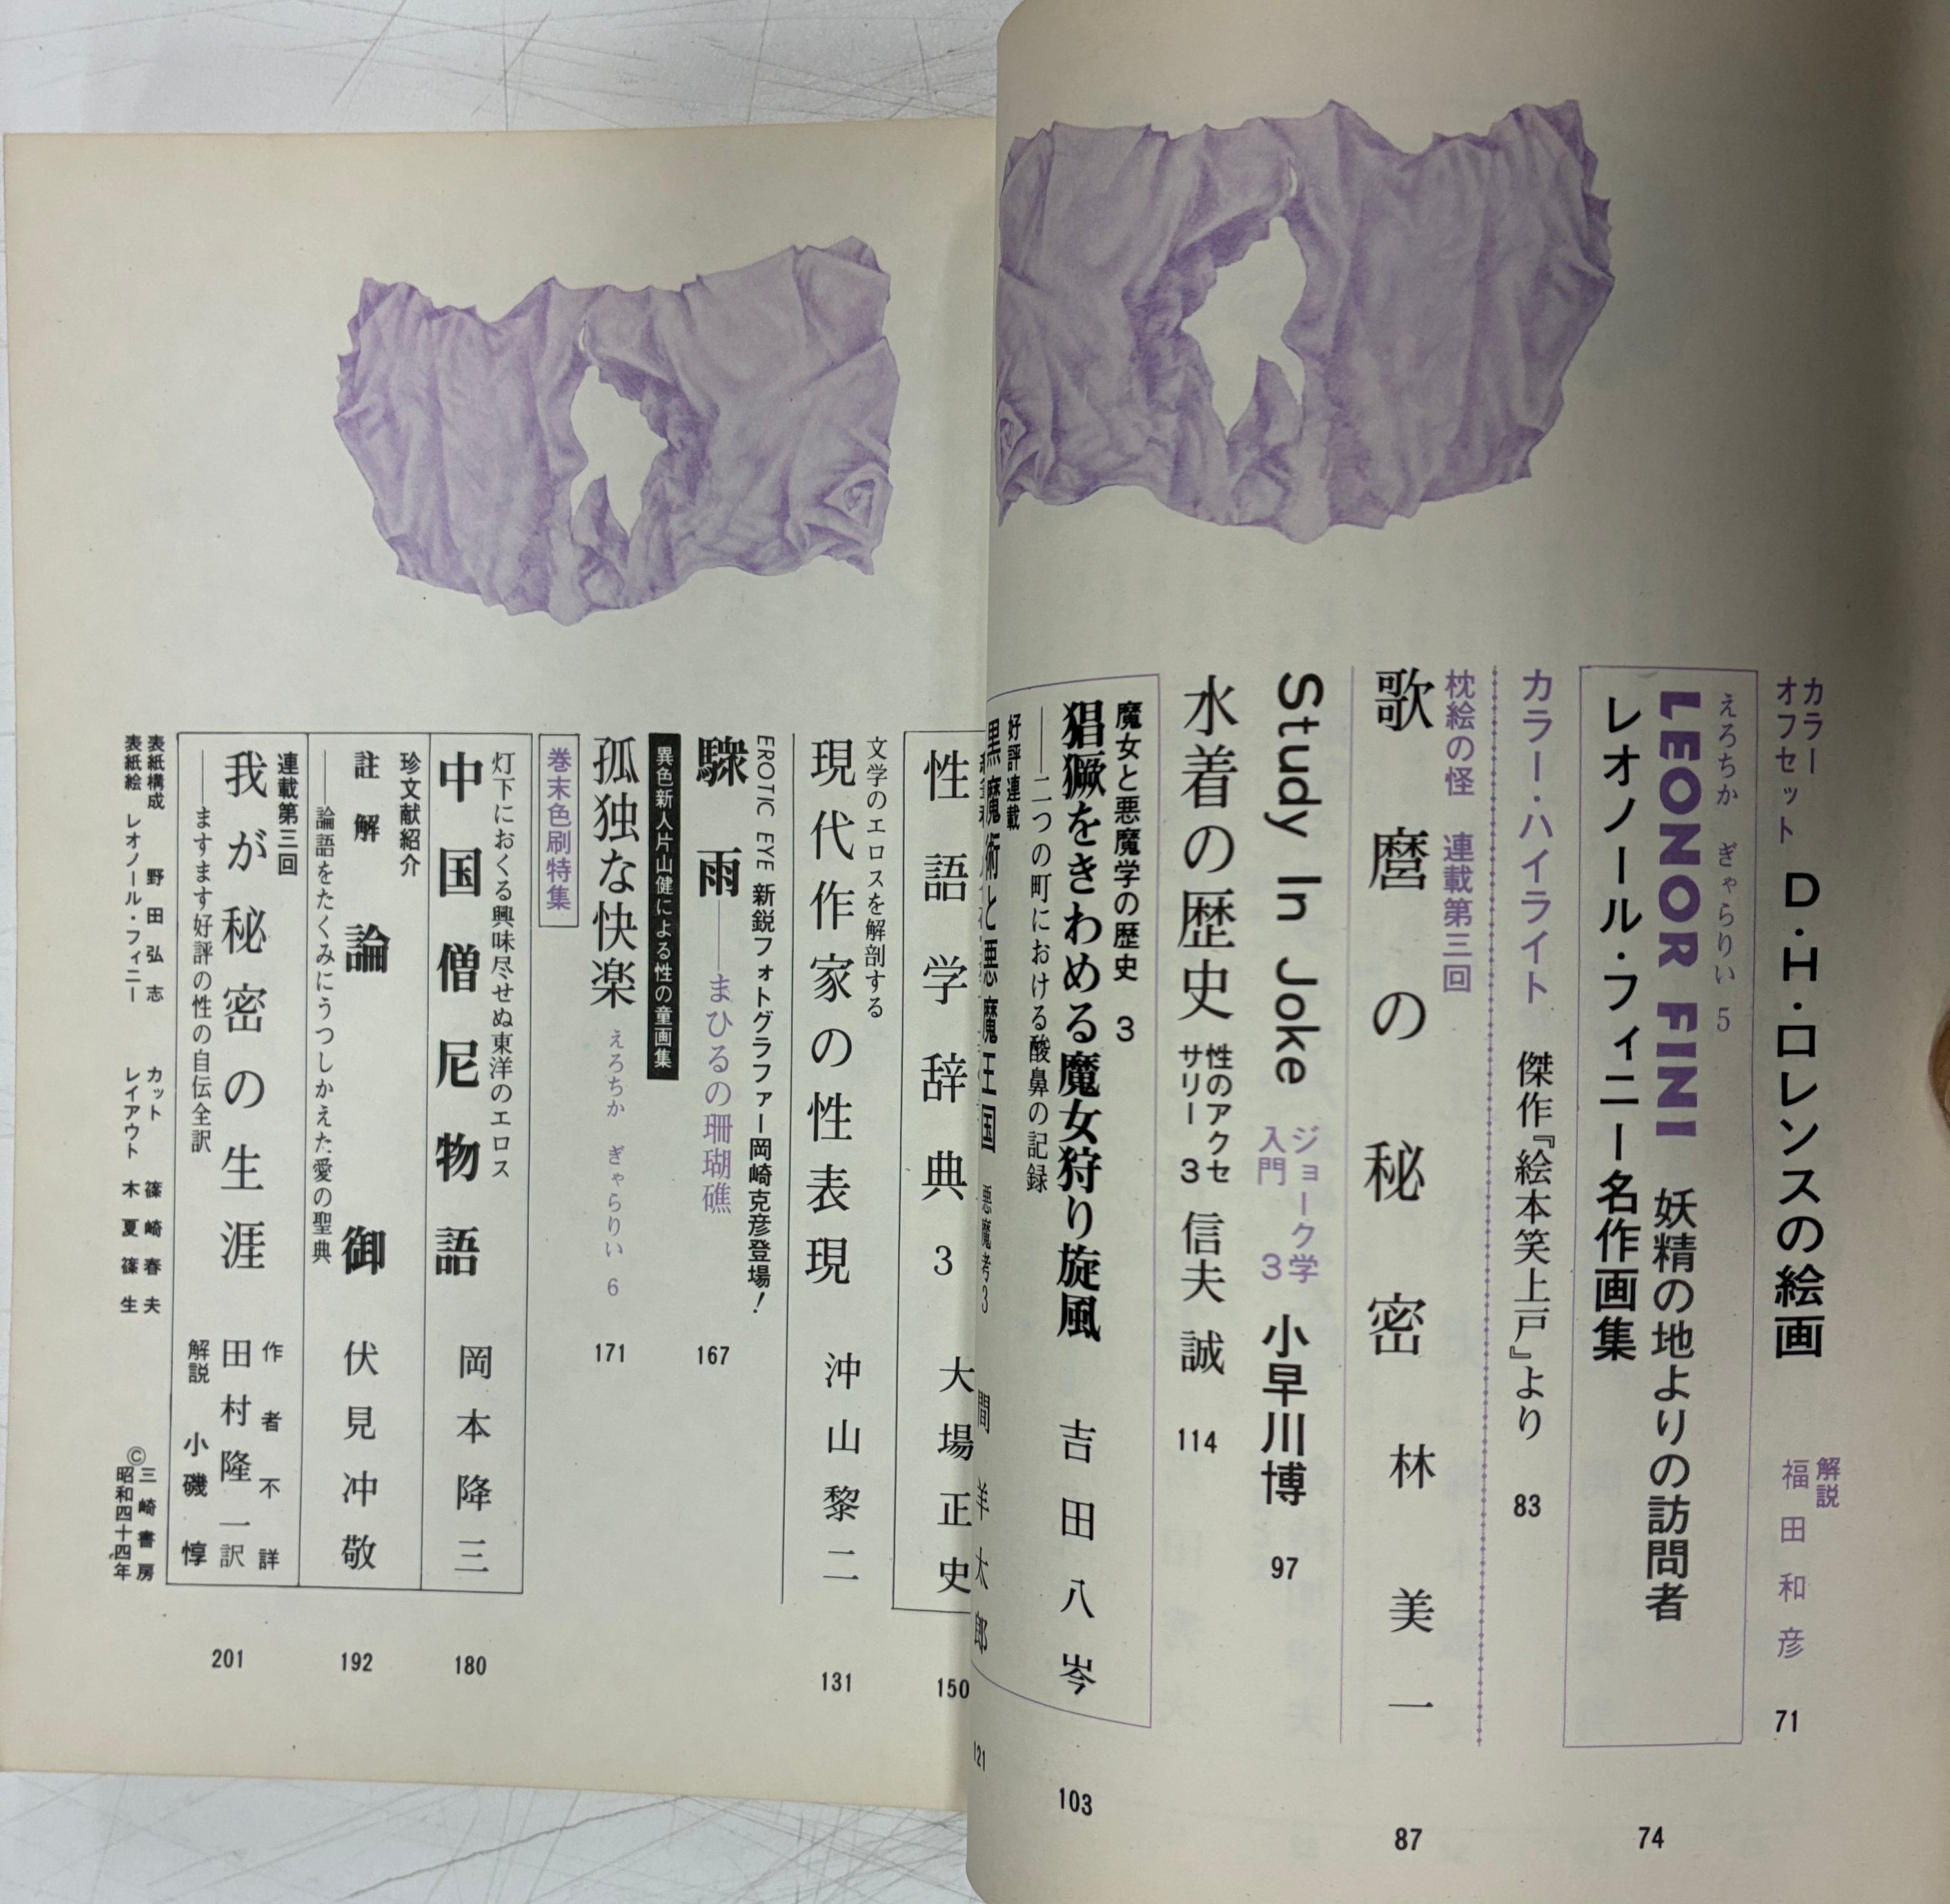 カラー
オフセット
D・H・ロレンスの絵画
解説
福田和彦
71
えろちか ぎゃらりい 5
LEONOR FINI 妖精の地よりの訪問者
レオノール・フィニー名作画集
74
カラー・ハイライト 傑作『絵本笑上戸』より 83
枕絵の怪 連載第三回
歌麿の秘密 林美一 87
Study In Joke
ジョーク学
入門 3
小早川博 97
水着の歴史
性のアクセ
サリー 3
信夫誠 114
魔女と悪魔学の歴史 3
猖獗をきわめる魔女狩り旋風 吉田八岑
――二つの町における酸鼻の記録
103
好評連載
黒魔術と悪魔王国 悪魔考3 間羊太郎
121
性語学辞典 3 大場正史 150
文学のエロスを解剖する
現代作家の性表現 沖山黎二 131
EROTIC EYE 新鋭フォトグラファー岡崎克彦登場!
驟雨――まひるの珊瑚礁 167
異色新人片山健による性の童画集
孤独な快楽 えろちか ぎゃらりい 6 171
巻末色刷特集
灯下におくる興味尽せぬ東洋のエロス
中国僧尼物語 岡本隆三 180
珍文献紹介
註解 論御 伏見冲敬
――論語をたくみにうつしかえた愛の聖典
192
連載第三回
我が秘密の生涯
作者不詳
田村隆一訳
――ますます好評の性の自伝全訳
解説 小磯惇
201
表紙構成 野田弘志 カット 篠崎春夫
表紙絵 レオノール・フィニー レイアウト 木夏篠生
©三崎書房
昭和四十四年